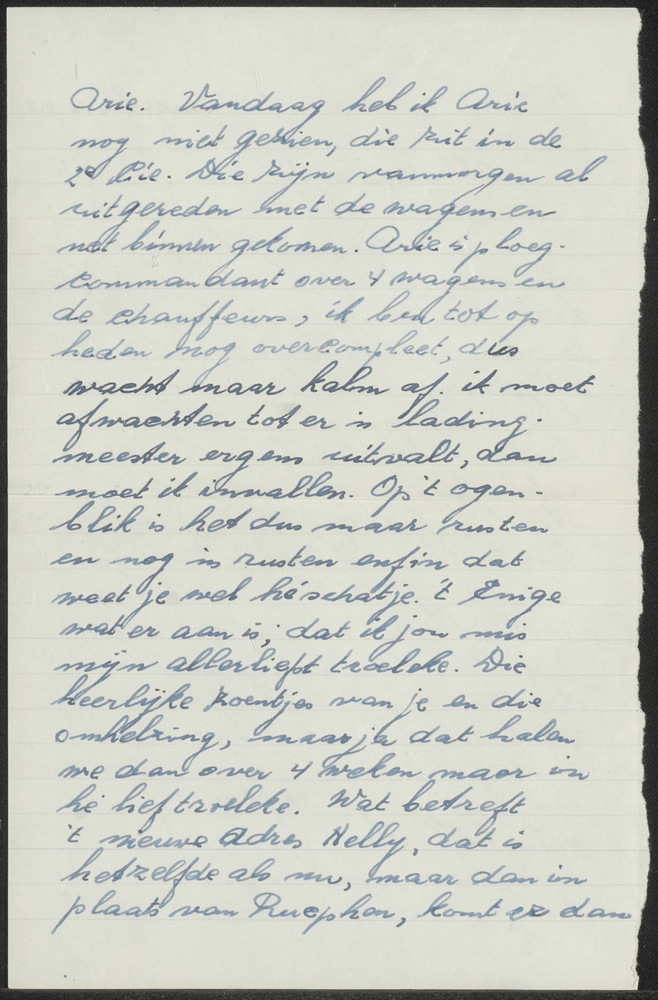 Arie. Vandaag heb ik Arie
nog niet gezien, die zit in de
2e Cie. Die zijn vanmorgen al
uitgereden met de wagens en
net binnen gekomen. Arie is ploeg-
commandant over 4 wagens en
de chauffeurs, ik ben tot op
heden nog overcompleet, dus
wacht maar kalm af. ik moet
afwachten tot er 'n lading-
meester ergens uitvalt, dan
moet ik invallen. Op 't ogen-
blik is het dus maar rusten
en nog 'ns rusten enfin dat
weet je wel hé schatje. 't Enige
wat er aan is, dat ik jou mis
mijn allerliefst troeleke. Die
heerlijke zoentjes van je en die
omhelzing, maar ja dat halen
we dan over 4 weken maar in
hé lief troeleke. Wat betreft
't nieuwe adres Nelly, dat is
hetzelfde als nu, maar dan in
plaats van Rucphen, komt er dan